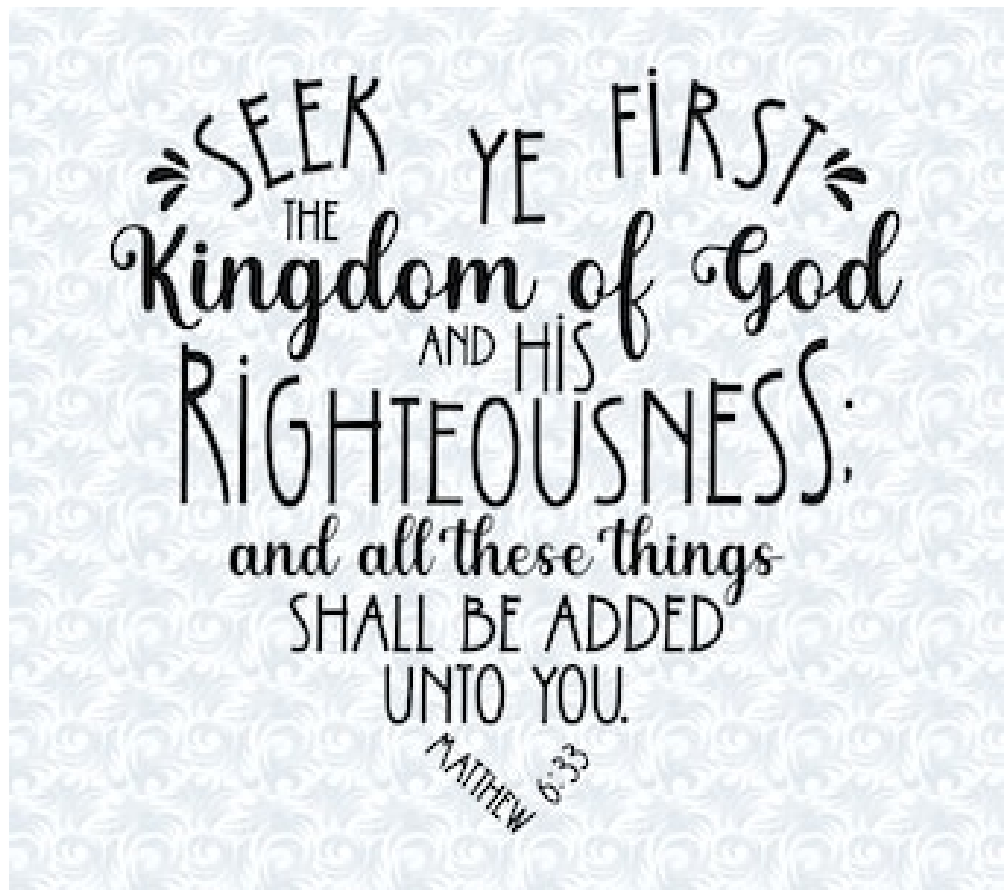 SEEK YE FIRST
THE
Kingdom of God
AND HIS
RIGHTEOUSNESS;
and all these things
SHALL BE ADDED
UNTO YOU.
MATTHEW 6:33